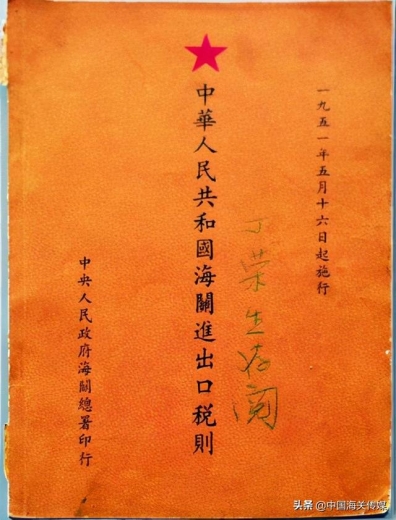 一九五一年五月十六日起施行
中華人民共和國海關進出口税則
丁荣生存阅
中央人民政府海關總署印行
头条 @中国海关传媒